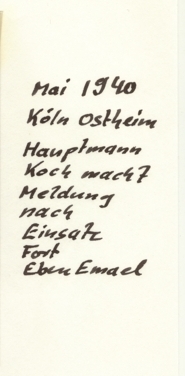 Mai 1940
Köln Ostheim
Hauptmann
Koch macht
Meldung
nach
Einsatz
Fort
Eben Emael